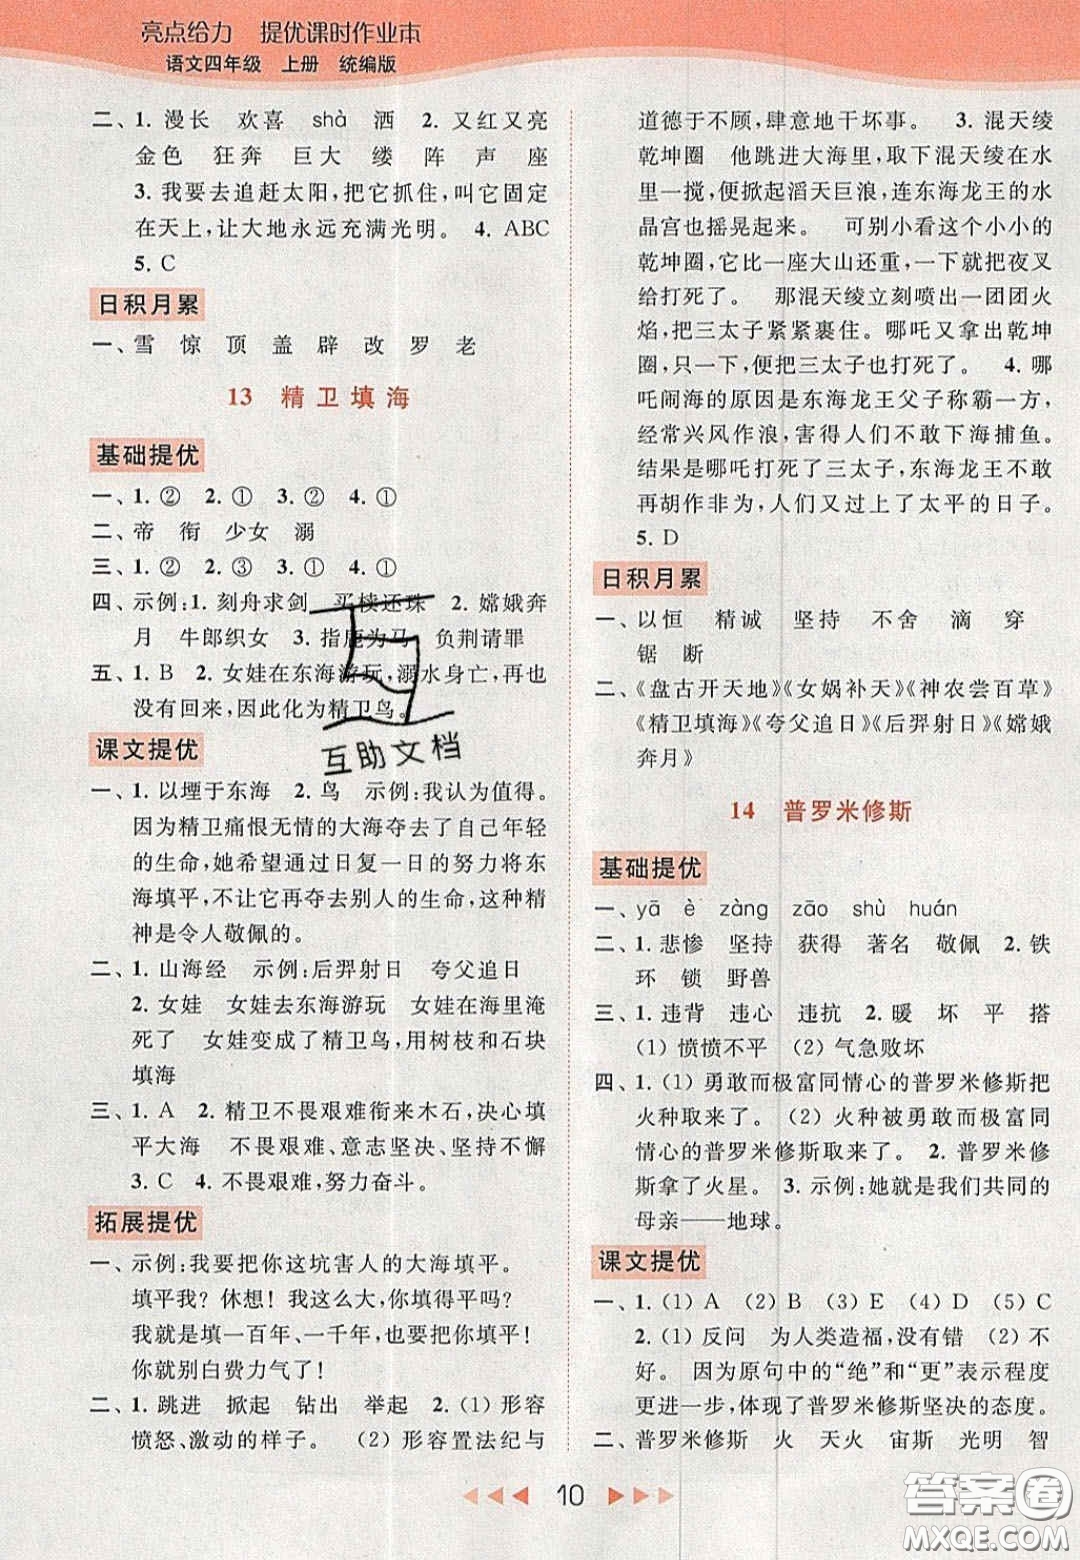 亮点给力 提优课时作业本
语文四年级 上册 统编版
二、1. 漫长 欢喜 shà 洒 2. 又红又亮
金色 狂奔 巨大 缕 阵 声 座
3. 我要去追赶太阳,把它抓住,叫它固定
在天上,让大地永远充满光明。 4. ABC
5. C
日积月累
一、雪 惊 顶 盖 辟 改 罗 老
13 精卫填海
基础提优
一、1. ② 2. ① 3. ② 4. ①
二、帝 衔 少女 溺
三、1. ② 2. ③ 3. ① 4. ①
四、示例:1. 刻舟求剑 买椟还珠 2. 嫦娥奔
月 牛郎织女 3. 指鹿为马 负荆请罪
五、1. B 2. 女娃在东海游玩,溺水身亡,再也
没有回来,因此化为精卫鸟。
课文提优
一、1. 以堙于东海 2. 鸟 示例:我认为值得。
因为精卫痛恨无情的大海夺去了自己年轻
的生命,她希望通过日复一日的努力将东
海填平,不让它再夺去别人的生命,这种精
神是令人敬佩的。
二、1. 山海经 示例:后羿射日 夸父追日
2. 女娃 女娃去东海游玩 女娃在海里淹
死了 女娃变成了精卫鸟,用树枝和石块
填海
三、1. A 2. 精卫不畏艰难衔来木石,决心填
平大海 不畏艰难、意志坚决、坚持不懈
3. C 4. 不畏艰难,努力奋斗。
拓展提优
一、示例:我要把你这坑害人的大海填平。
填平我? 休想! 我这么大,你填得平吗?
我就是填一百年、一千年,也要把你填平!
你就别白费力气了!
二、1. 跳进 掀起 钻出 举起 2. (1) 形容
愤怒、激动的样子。 (2) 形容置法纪与
道德于不顾,肆意地干坏事。 3. 混天绫
乾坤圈 他跳进大海里,取下混天绫在水
里一搅,便掀起滔天巨浪,连东海龙王的水
晶宫也摇晃起来。 可别小看这个小小的
乾坤圈,它比一座大山还重,一下就把夜叉
给打死了。 那混天绫立刻喷出一团团火
焰,把三太子紧紧裹住。哪吒又拿出乾坤
圈,只一下,便把三太子也打死了。 4. 哪
吒闹海的原因是东海龙王父子称霸一方,
经常兴风作浪,害得人们不敢下海捕鱼。
结果是哪吒打死了三太子,东海龙王不敢
再胡作非为,人们又过上了太平的日子。
5. D
日积月累
一、以恒 精诚 坚持 不舍 滴 穿
锯 断
二、《盘古开天地》《女娲补天》《神农尝百草》
《精卫填海》《夸父追日》《后羿射日》《嫦娥
奔月》
14 普罗米修斯
基础提优
一、yā è zàng zāo shù huán
二、1. 悲惨 坚持 获得 著名 敬佩 2. 铁
环 锁 野兽
三、1. 违背 违心 违抗 2. 暖 坏 平 搭
(1) 愤愤不平 (2) 气急败坏
四、1. (1) 勇敢而极富同情心的普罗米修斯把
火种取来了。 (2) 火种被勇敢而极富同
情心的普罗米修斯取来了。 2. 普罗米修
斯拿了火星。 3. 示例:她就是我们共同的
母亲——地球。
课文提优
一、1. (1) A (2) B (3) E (4) D (5) C
2. (1) 反问 为人类造福,没有错 (2) 不
好。 因为原句中的“绝”和“更”表示程度
更进一步,体现了普罗米修斯坚决的态度。
二、普罗米修斯 火 天火 宙斯 光明 智
互助文档
10
答案圈
MXQE.COM